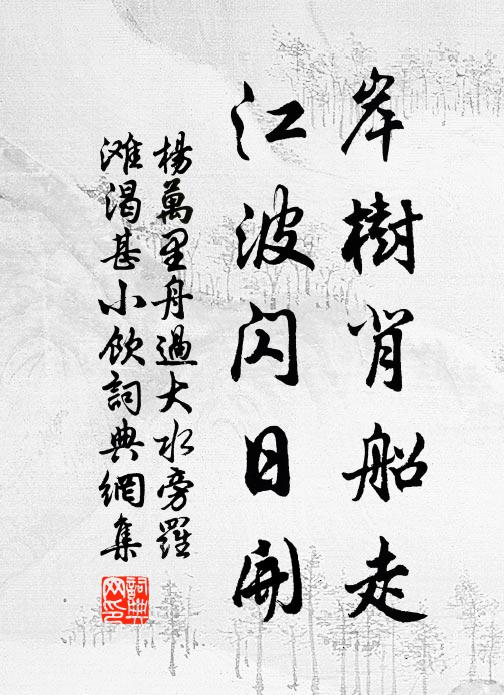 岸樹背船走
江波閃日開
楊萬里舟過大水旁羅
滩渴甚小飲詞典網集